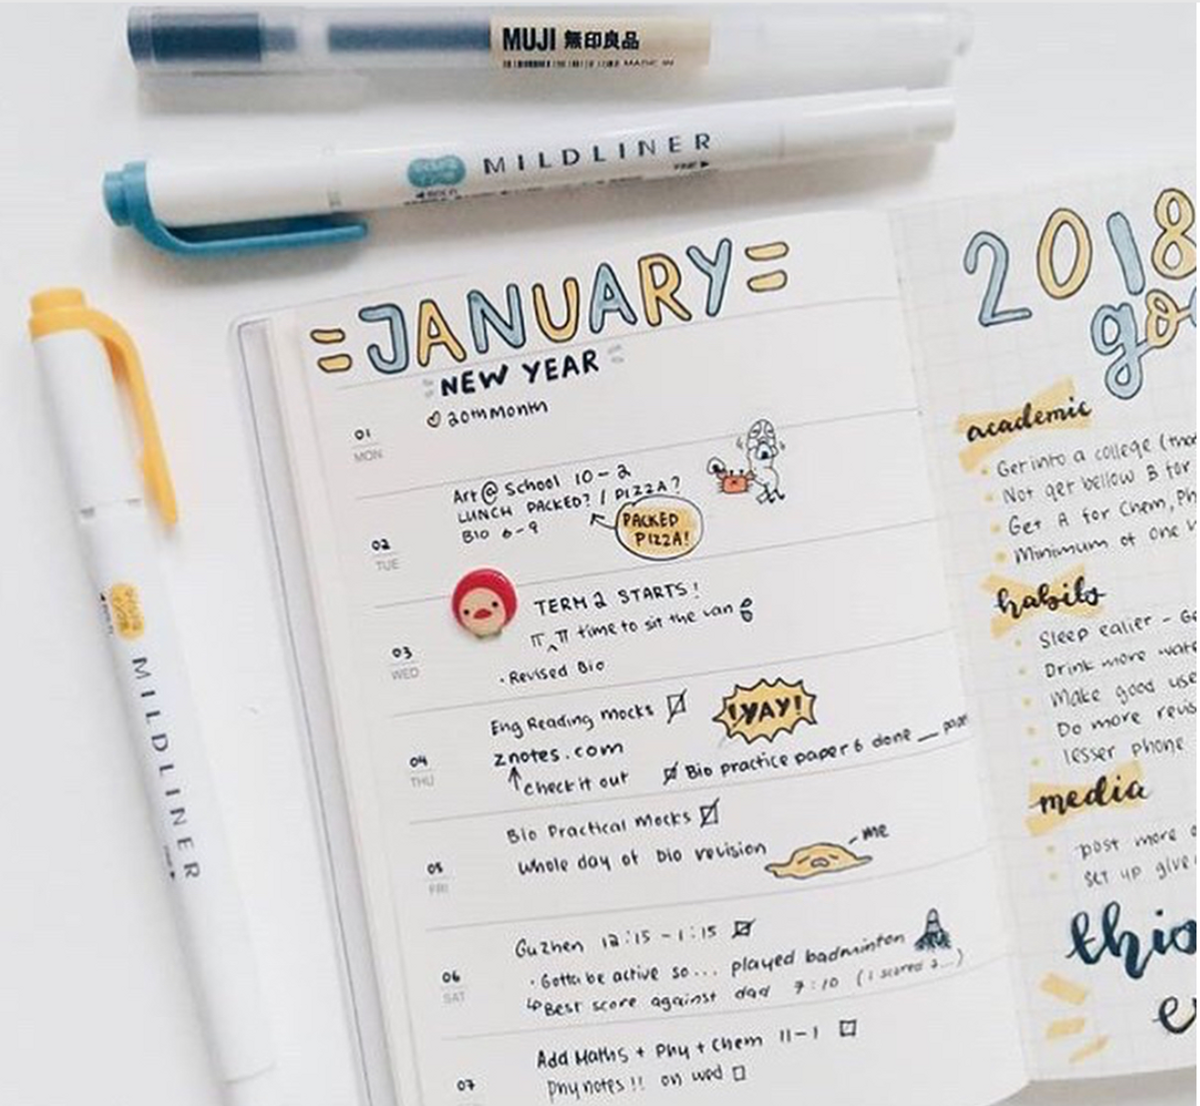 MUJI 無印良品
MADE IN
MILDLINER
MILDLINER
=JANUARY=
NEW YEAR
20th Month
01
MON
Art @ School 10-2
LUNCH PACKED? / PIZZA?
BIO 6-9
PACKED
PIZZA!
02
TUE
TERM 2 STARTS!
π_π time to sit the van
• Revised Bio
03
WED
Eng Reading Mocks
!YAY!
znotes.com
check it out
Bio practice paper 6 done
04
THU
Bio Practical Mocks
whole day of bio revision
me
05
FRI
Guzhen 12:15 - 1:15
• Gotta be active so... played badminton
Best score against dad 7:10 (I scored 2...)
06
SAT
Add Maths + Phy + Chem 11-1
Phy notes!! on wed
07
2018
go
academic
• Get into a college
• Not get bellow B for
• Get A for Chem, Ph
• Minimum of one
habits
• Sleep ealier - Ge
• Drink more wate
• Make good use
• Do more revis
• lesser phone
media
• post more
• set up give
this
e